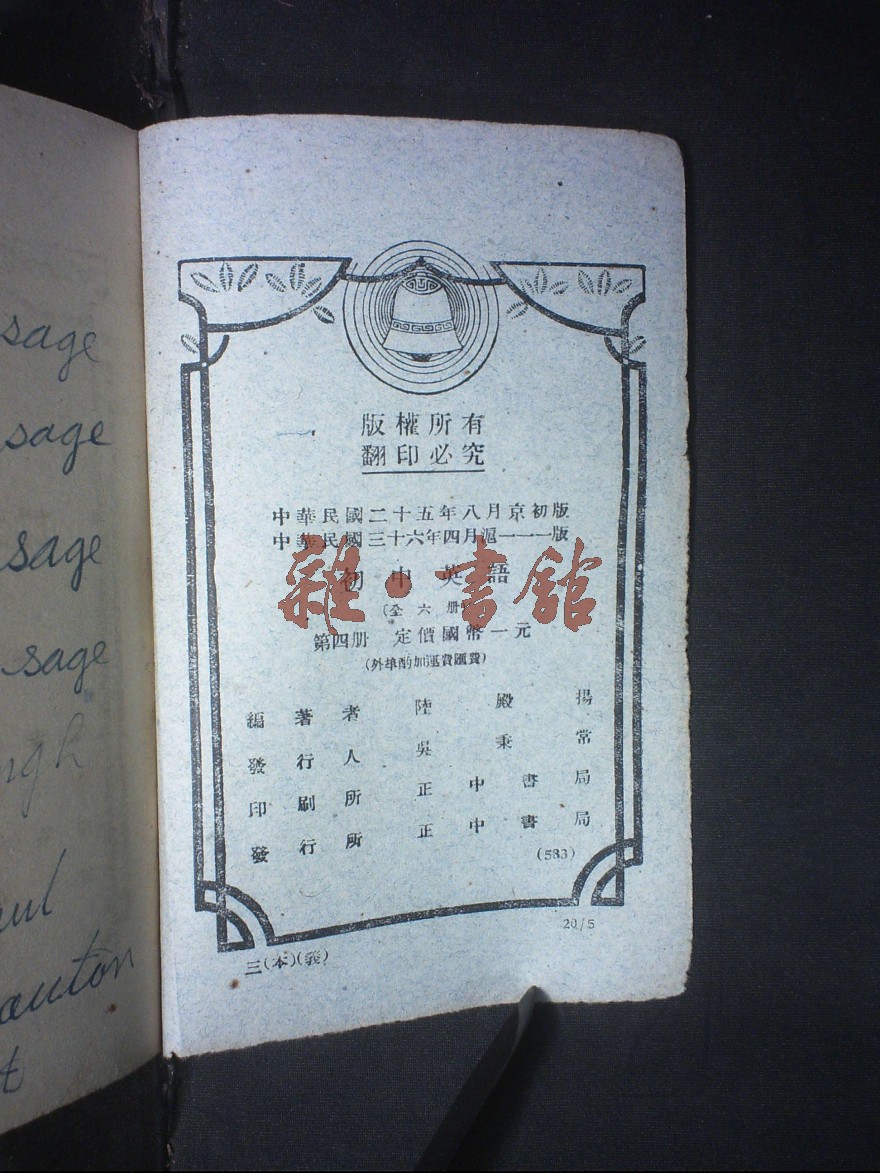 sage
sage
sage
sage
ngh
auton
版權所有
翻印必究
中華民國二十五年八月京初版
中華民國三十六年四月滬一一一版
雜·書館
初中英語
(全六册
第四册 定價國幣一元
(外埠酌加運費匯費)
編著者 陸殿揚
發行人 吳秉常
印刷所 正中書局
發行所 正中書局
(583)
20/5
三(本)(義)